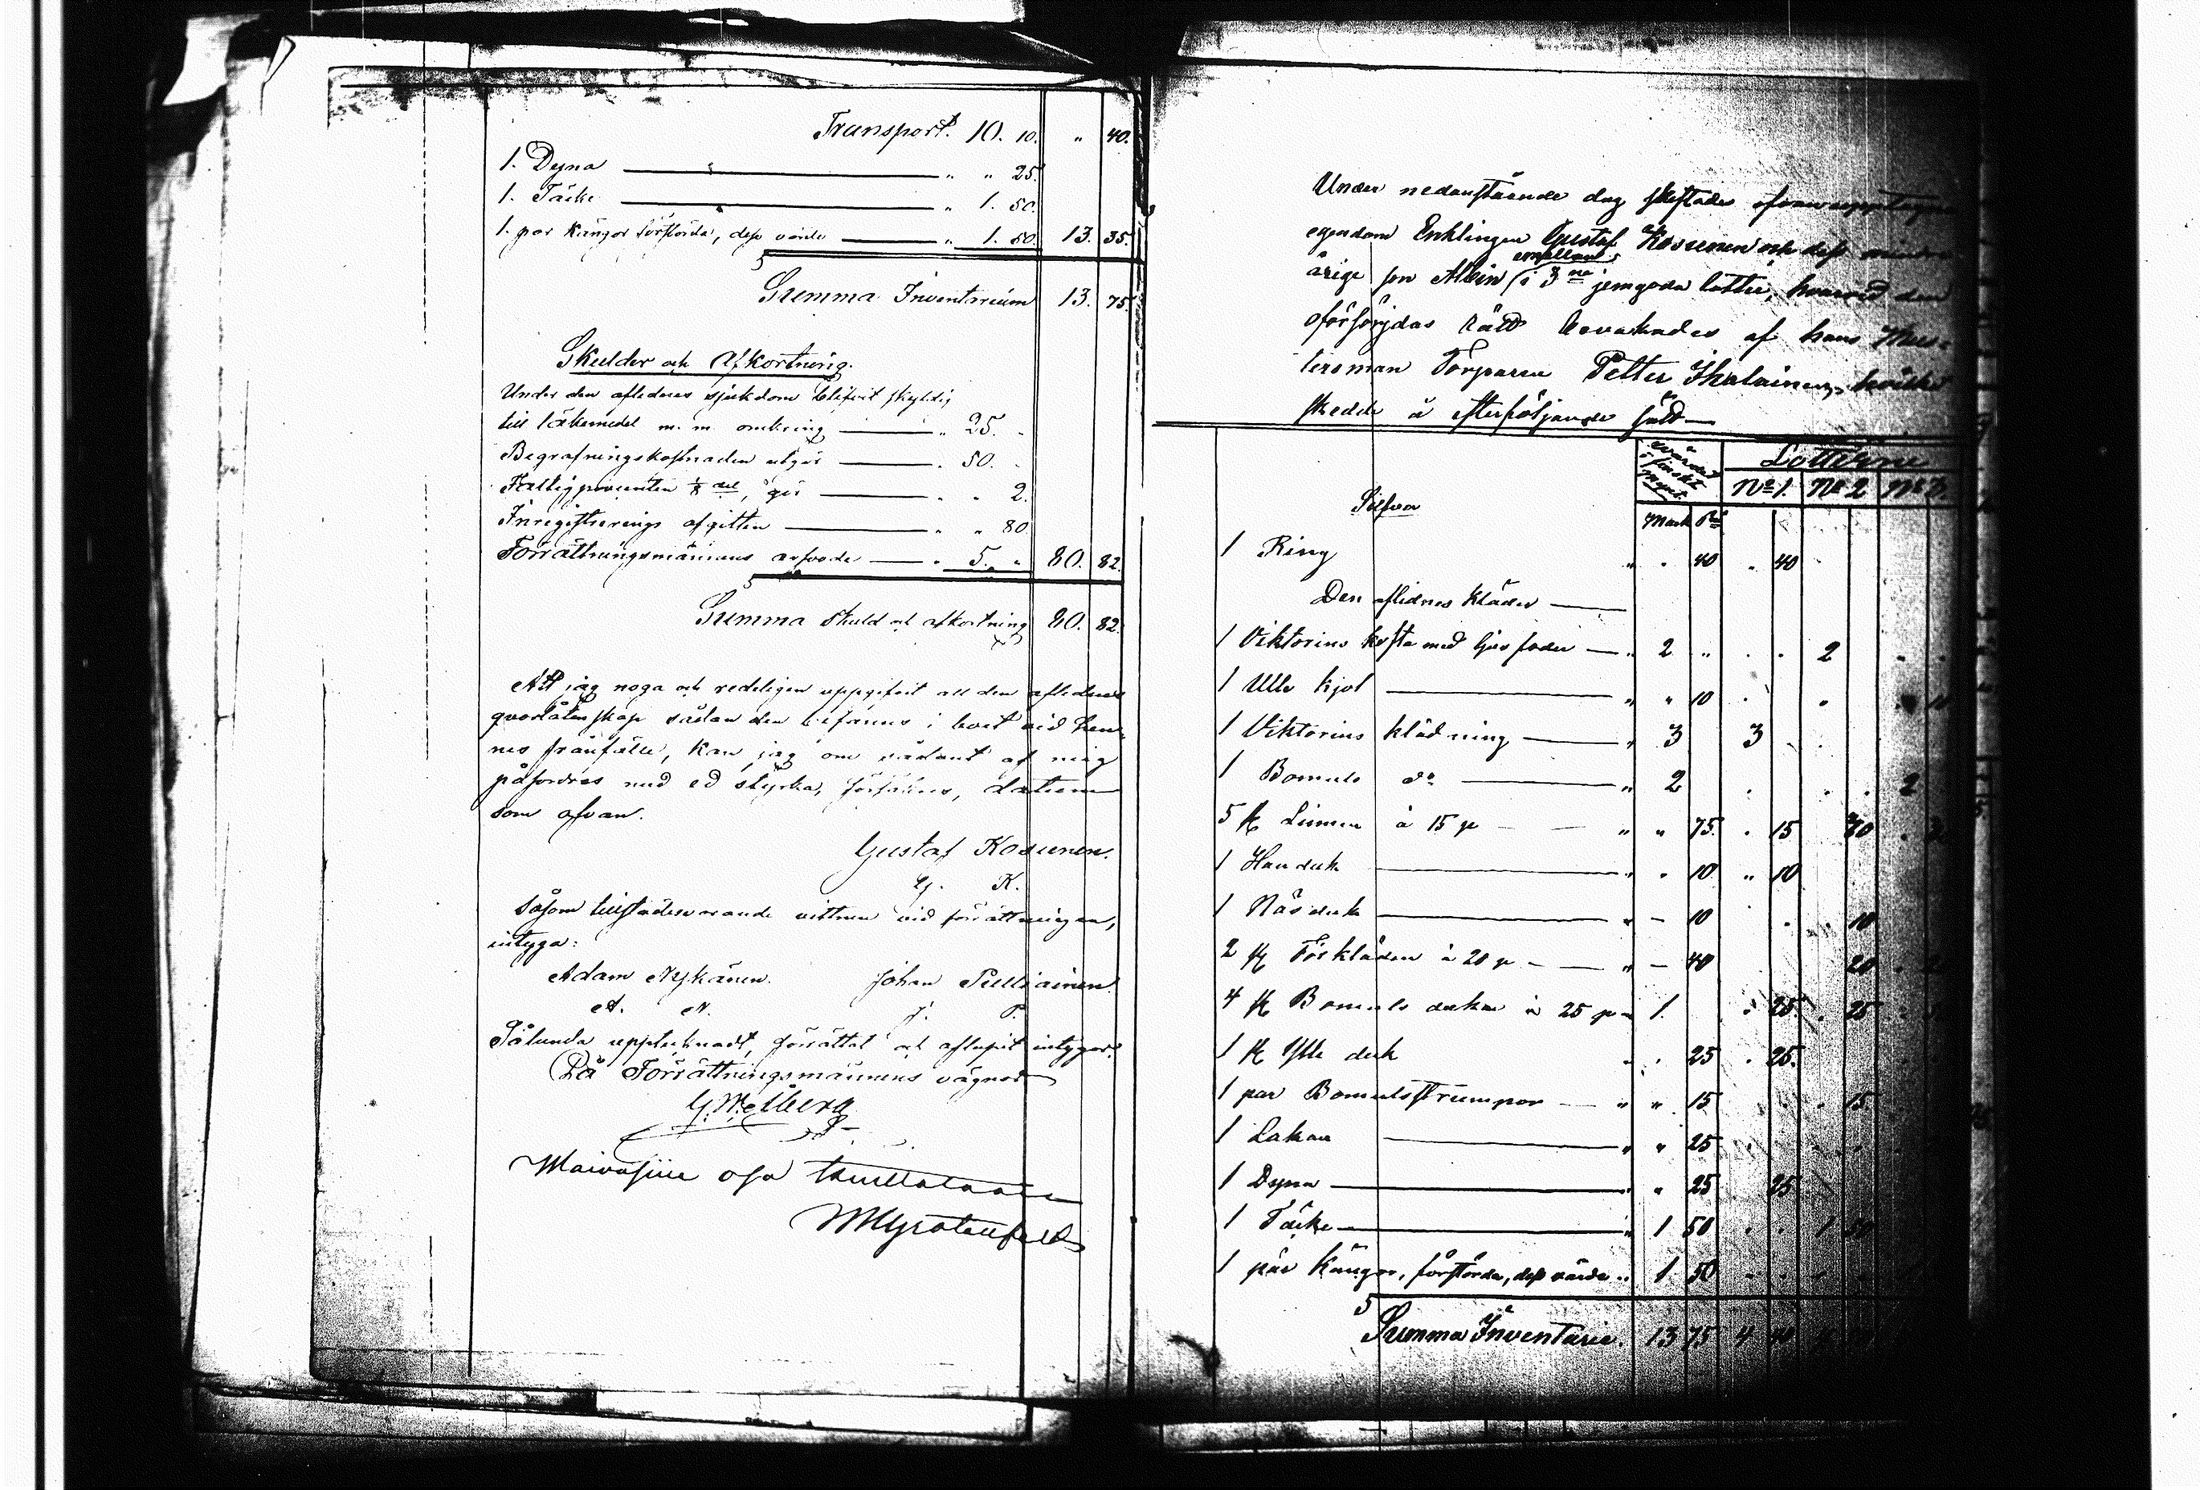 Transport. 10. 10. " 40.
1. Dyna " " 25.
1. Täcke " 1. 50.
1. par Kängor förstörda, dess värde " 1. 50. 13. 35.
Summa Inventarium 13. 75.
Skulder och Afkortning.
Under den aflednes sjukdom blifvit skyldig
till läkemedel m. m. omkring " 25. "
Begrafningskostnaden utgör " 50. "
Fattigprocenten 1/8 del, gör " " 2.
Inregistrerings afgiften " " 80.
Förrättningsmännens arfvode " 5. " 80. 82.
Summa skuld och afkortning 80. 82.
Att jag noga och redeligen uppgifvit all den aflednes
qvarlåtenskap sådan den befanns i boet vid hen-
nes frånfälle, kan jag om sådant af mig
påfordras med ed styrka, försäkras, datum
som ofvan.
Gustaf Kosunen.
G. K.
Såsom tillstädesvarande vittnen vid förrättningen,
intyga:
Adam Nykänen. Johan Pulliainen.
A. N. J. P.
Sålunda upptecknadt, förrättat och aflupit intygar.
På Förrättningsmännens vägnar
Maivasiin osa
Under nedanstående dag skiftades ofvanupptagne
egendom Enklingen Gustaf Kosunen och dess minder
emellan
årige son Albin i 3 ne jemgoda lotter, hvarvid den
oförsörjdas rätt bevakades af hans
Torparen Petter Ikalainen, hvilket
skedde å efterföljande sätt
värderadt
i finskt
mynt. Lotterne
Silfver No 1. No 2 No 3.
Mark Pi
1 Ring " " 40 " 40
Den aflednes Kläder
1 Viktorins kofta med ljus foder " 2 " " " 2
1 Ulle kjol " " 10
1 Viktorins klädning " 3 3
1 Bomuls do " 2 2
5 st Linnen à 15 p " " 75. " 15
1 Handuk " " 10 " 10
1 Näsduk " " 10 10
2 st Förkläden à 20 p " " 40 20
4 st Bomuls dukar à 25 p " 1. " 25. " 25
1 st Ylle duk " " 25 " 25.
1 par Bomulsstrumpor " " 15 15
1 Lakan " " 25
1 Dyna " " 25 25
1 Täcke " 1 50 " " 1 50
1 par Kängor, förstörda, dess värde " 1 50
Summa Inventarie. 13 75 4 40